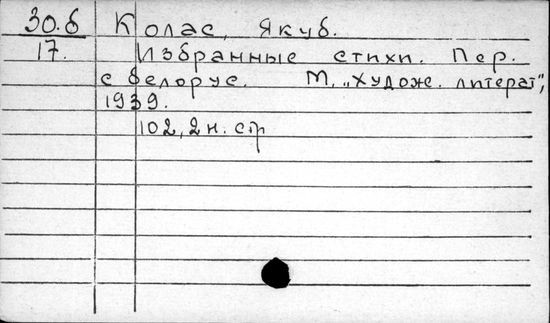 30.б Колас, Якуб.
17. Избранные стихи. Пер.
с белорус. М. „Худож. литерат",
1939.
102, 2 н. стр